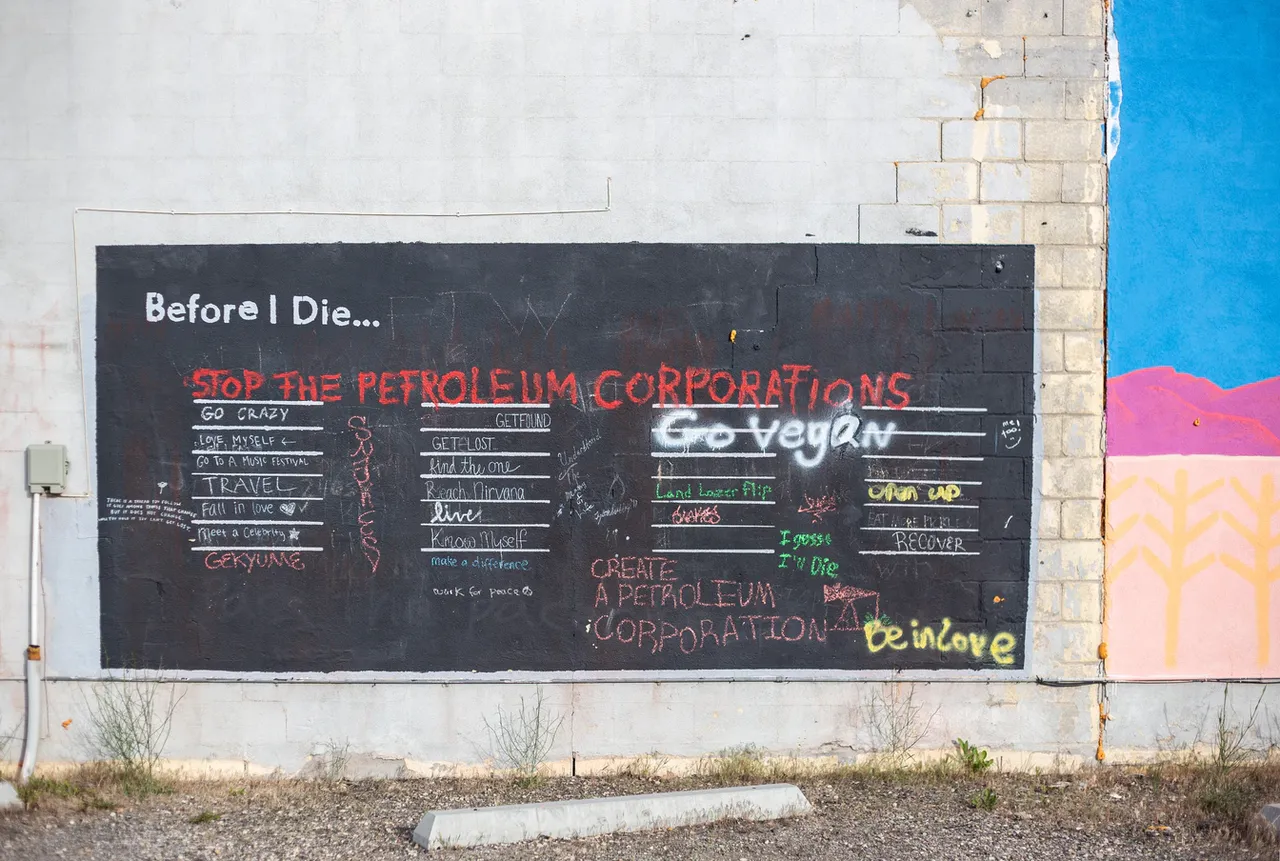 Before I Die...
STOP THE PETROLEUM CORPORATIONS
GO CRAZY
LOVE, MYSELF
GO TO A MUSIC FESTIVAL
TRAVEL
Fall in love
Meet a Celebrity
GEKYUME
GETFOUND
GET LOST
find the one
Reach Nirvana
live
Know Myself
make a difference
work for peace
Understand
Go Vegan
me!
too!
Land Lazer Flip
I guess
I'll Die
open up
EAT MORE
RECOVER
with
CREATE
A PETROLEUM
CORPORATION
Be in Love